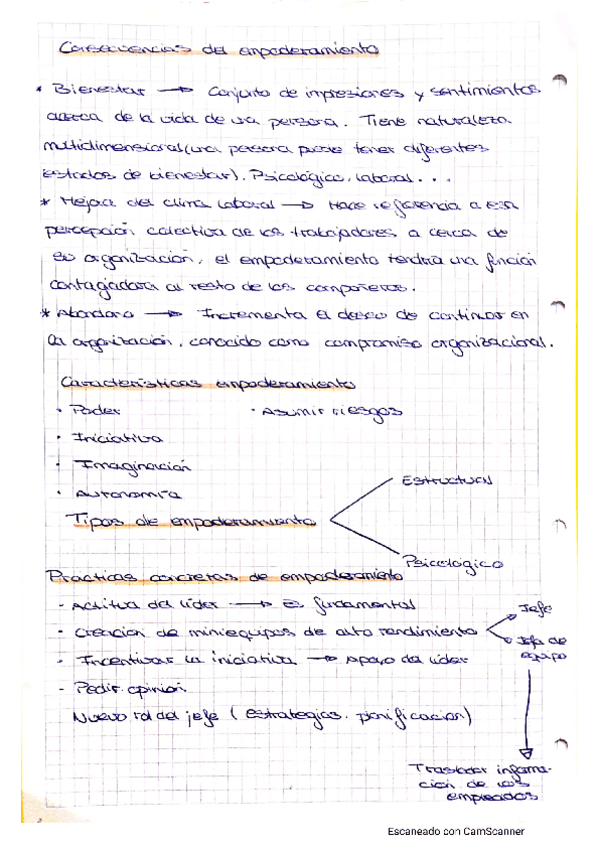 Consecuencias del empoderamiento
* Bienestar → Conjunto de impresiones y sentimientos
acerca de la vida de una persona. Tiene naturaleza
multidimensional (una persona puede tener diferentes
estados de bienestar). Psicológico, laboral...
* Mejora del clima laboral → Hace referencia a esa
percepción colectiva de los trabajadores a cerca de
su organización, el empoderamiento tendría una función
contagiadora al resto de los compañeros.
* Abandono → Incrementa el deseo de continuar en
la organización, conocido como compromiso organizacional.
Características empoderamiento
· Poder · Asumir riesgos
· Iniciativa
· Imaginación
· Autonomía
Tipos de empoderamiento
Estructural
Psicológico
Practicas concretas de empoderamiento
- Actitud del líder → es fundamental
- Creacion de miniequipos de alto rendimiento
Jefe
Jefe de
equipo
- Incentivar la iniciativa → Apoyo del líder
- Pedir opinión
Nuevo rol del jefe (estrategias, planificacion)
Trasladar informa-
ción de los
empleados
Escaneado con CamScanner